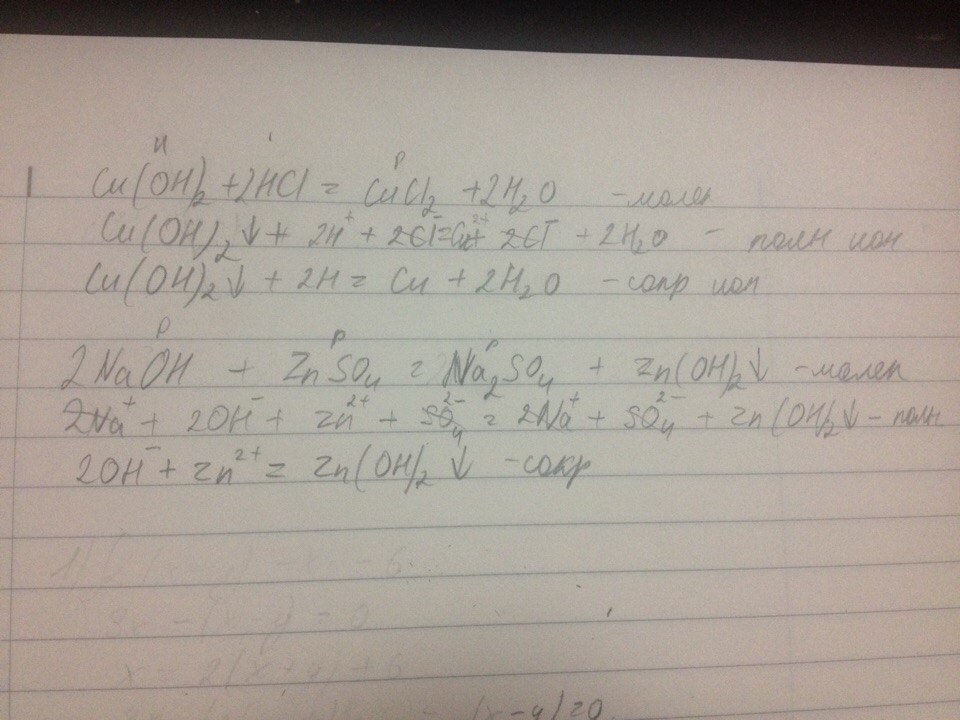 н
р
Cu(OH)₂ + 2HCl = CuCl₂ + 2H₂O - молек
Cu(OH)₂↓ + 2H⁺ + 2Cl⁻ = Cu²⁺ + 2Cl⁻ + 2H₂O - полн ион
Cu(OH)₂↓ + 2H = Cu + 2H₂O - сокр ион
р р р
2NaOH + ZnSO₄ = Na₂SO₄ + Zn(OH)₂↓ - молек
2Na⁺ + 2OH⁻ + Zn²⁺ + SO₄²⁻ = 2Na⁺ + SO₄²⁻ + Zn(OH)₂↓ - полн
2OH⁻ + Zn²⁺ = Zn(OH)₂↓ - сокр